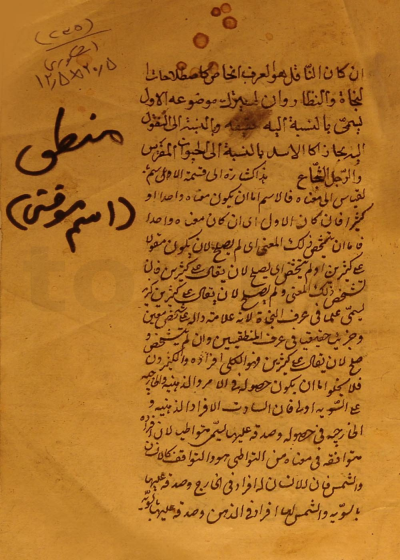 (۲۳۵)
۱۲٫۵×۲۰٫۵
منطق
(اسم موقتی)
ان كان الناقل هو العرف الخاص كاصطلاحات
النحاة والنظار وان لم يترك موضوعه الاول
يسمى بالنسبة اليه حقيقة وبالنسبة الى المنقول
اليه مجازا كالاسد بالنسبة الى الحيوان المفترس
والرجل الشجاع
بالقياس الى معناه فالاسم اما ان يكون معناه واحدا او
كثيرا فان كان الاول اى ان كان معناه واحدا
فاما ان يتشخص ذلك المعنى اى لم يصلح لان يكون مقولا
على كثيرين او لم يتشخص اى يصلح لان يقال على كثيرين فان
تشخص ذلك المعنى ولم يصلح لان يقال على كثيرين
يسمى علما فى عرف النحاة لانه علامة دالة على شخص معين
وجزئى حقيقيا فى عرف المنطقيين وان لم يتشخص و
صلح لان يقال على كثيرين فهو الكلى افراده والكثيرون
فلا يخلو اما ان يكون حصوله فى الافراد الذهنية والخارجية
على السوية اولا فان تساوت الافراد الذهنية و
الخارجية فى حصوله وصدقه عليها يسمى متواطيا لان افراده
متوافقة فى معناه من التواطى وهو التوافق كالانسان
والشمس فان للانسان له افراد فى الخارج وصدقه عليها
بالسوية والشمس لها افراد فى الذهن وصدقه عليها بالسوية